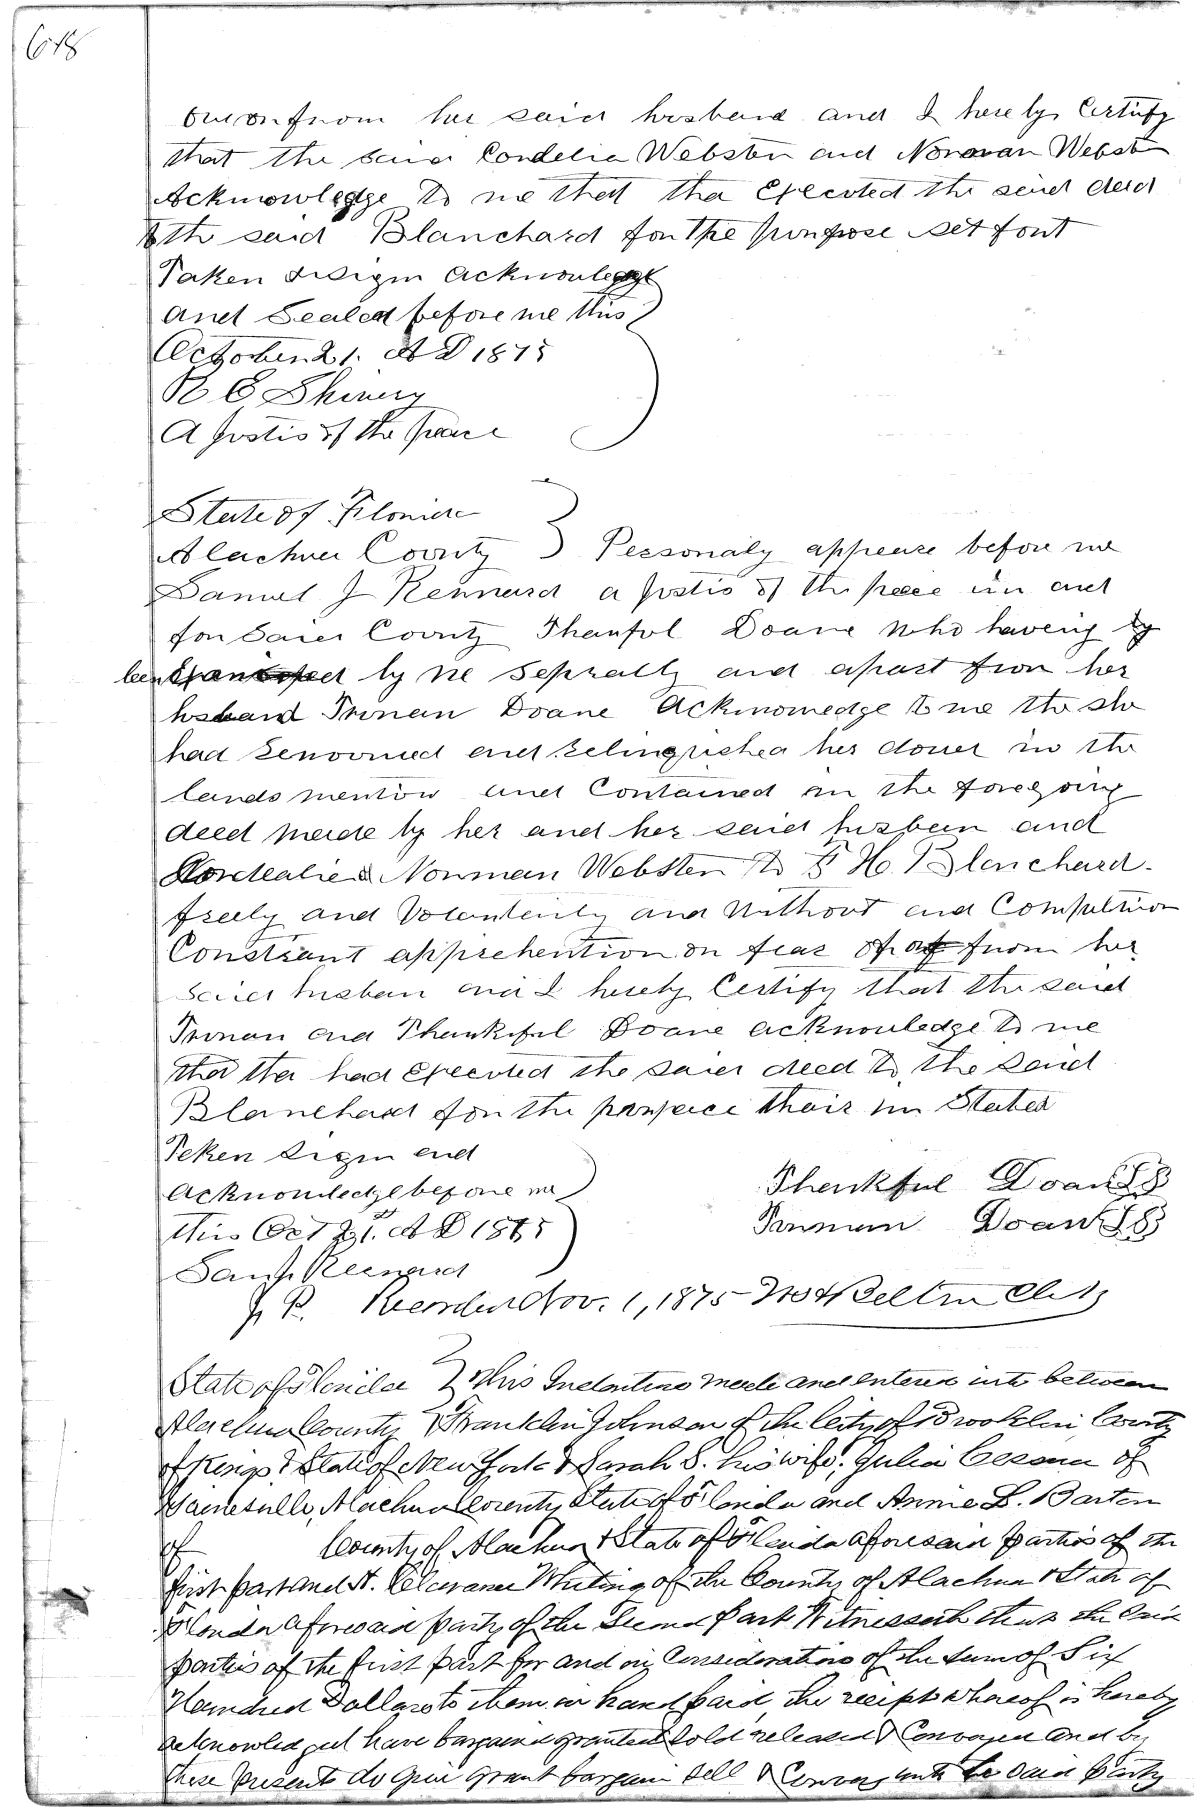 648
from her said husband and I hereby Certify
that the said Cordelia Webster and Norman Webster
Acknowledge to me that tha Executed the seid deed
to th said Blanchard for the purpose set fort
Taken & sign acknowledge
and Sealed before me this
October 21. A D 1875
R E Shivery
A Justis of the peace
State of Florida
Alachua County } Personaly appease before me
Samuel J Kennard a Justis of the peace in and
for said County Thanful Doane who haveing
been by me seprally and apart from her
husband Truman Doane Acknowledge to me the she
had renounced and relinquished her dower in the
lands mention and Contained in the foregoing
deed made by her and her said husban and
Cordealie & Norman Webster to F H Blanchard.
freely and Voluntarily and without and Compultion
Constraint apprehention or fear of from her
said husban and I hereby Certify that the said
Truman and Thankful Doane acknowledge to me
that tha had Executed the said deed to the said
Blanchard for the thair in Stated
Taken sign and
acknowledge before me
this Oct 21st. A D 1875
Thankful Doane LS
Truman Doane LS
Saml J. Kennard
J P. Recorded Nov. 1, 1875 Clerk
State of Florida } This Indenture made and entered into between
Alachua County } Franklin Johnson of the City of Brooklin, County
of Kings & State of New York & Sarah S. his wife, Julia Cessna of
Gainesville, Alachua County State of Florida and Annie L. Barton
of County of Alachua & State of Florida aforesaid parties of the
first part and H. Clarance Whiting of the County of Alachua & State of
Florida aforesaid party of the Second part Witnesseth that the said
parties of the first part for and in Consideration of the sum of Six
Hundred Dollars to them in hand paid, the recipt whereof is hereby
acknowledged have bargaind granted sold released & Conveyed and by
these presents do give grant bargain sell & Convey unto the said party